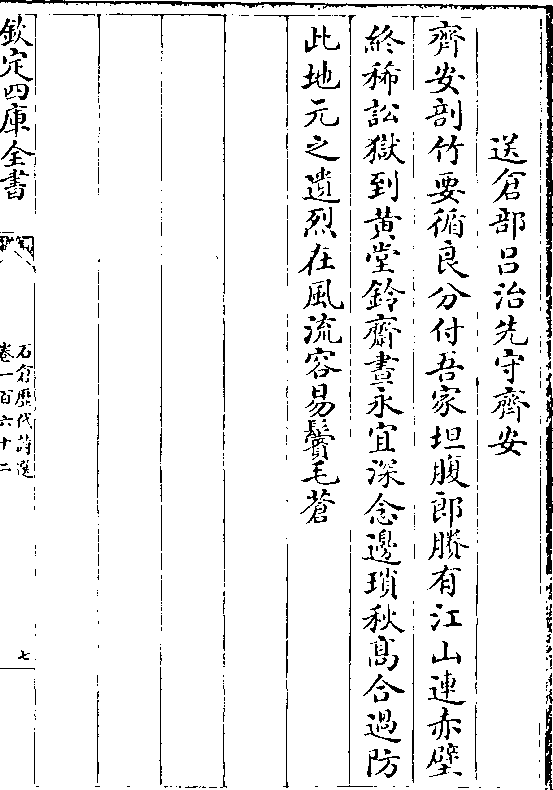 送倉部吕治先守齊安
齊安剖竹要循良分付吾家坦腹郎勝有江山連赤壁
終稀訟獄到黄堂鈴齋晝永宜深念邊瑣秋髙合過防
此地元之遺烈在風流容易鬢毛蒼
欽定四庫全書
石倉歷代詩選
卷一百六十二
七